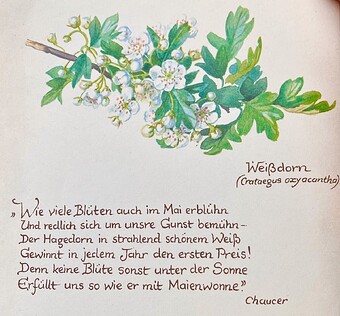 Weißdorn
(Crataegus oxyacantha)
„Wie viele Blüten auch im Mai erblühn
Und redlich sich um unsre Gunst bemühn–
Der Hagedorn in strahlend schönem Weiß
Gewinnt in jedem Jahr den ersten Preis!
Denn keine Blüte sonst unter der Sonne
Erfüllt uns so wie er mit Maienwonne.”
Chaucer